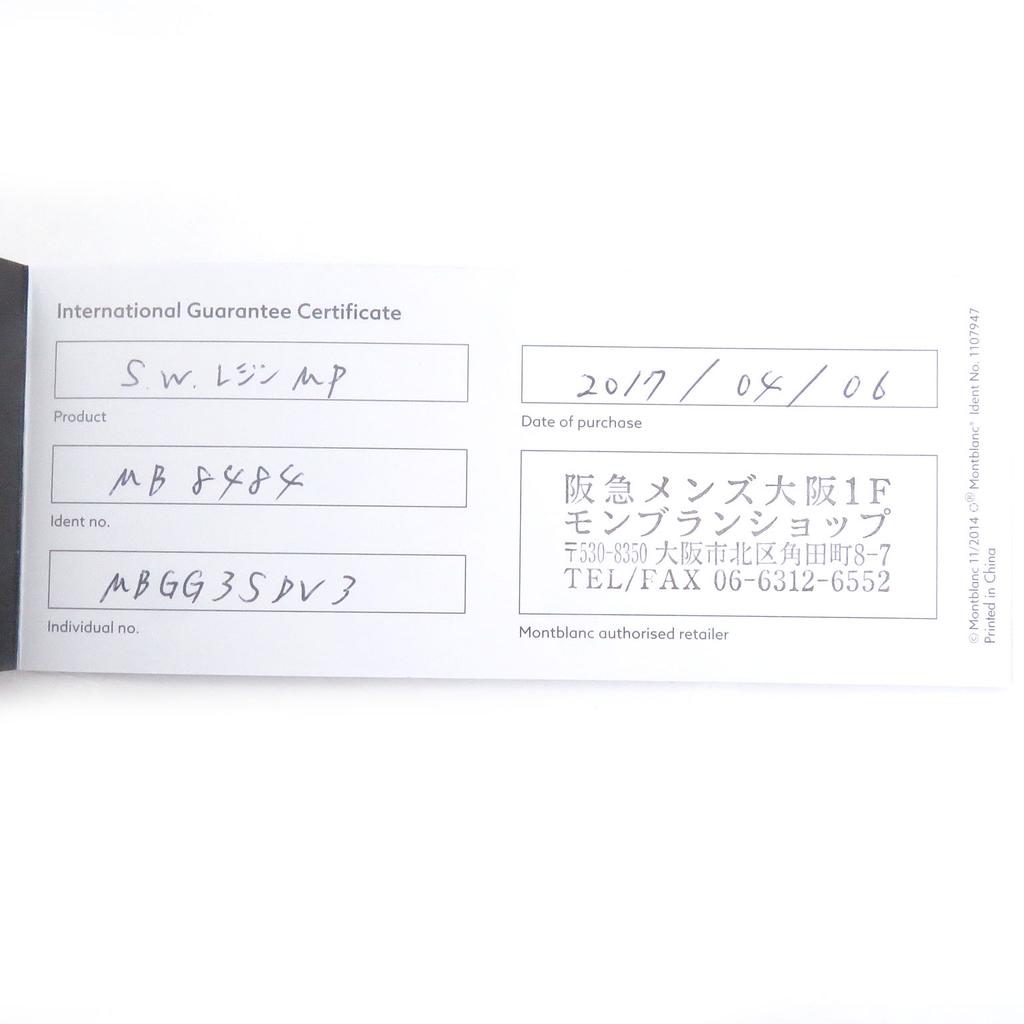 International Guarantee Certificate
S.W. レジン MP
Product
MB 8484
Ident no.
MBGG3SDV3
Individual no.
2017 / 04 / 06
Date of purchase
阪急メンズ大阪1F
モンブランショップ
〒530-8350 大阪市北区角田町8-7
TEL/FAX 06-6312-6552
Montblanc authorised retailer
© Montblanc 11/2014 Montblanc® Ident No. 1107947
Printed in China